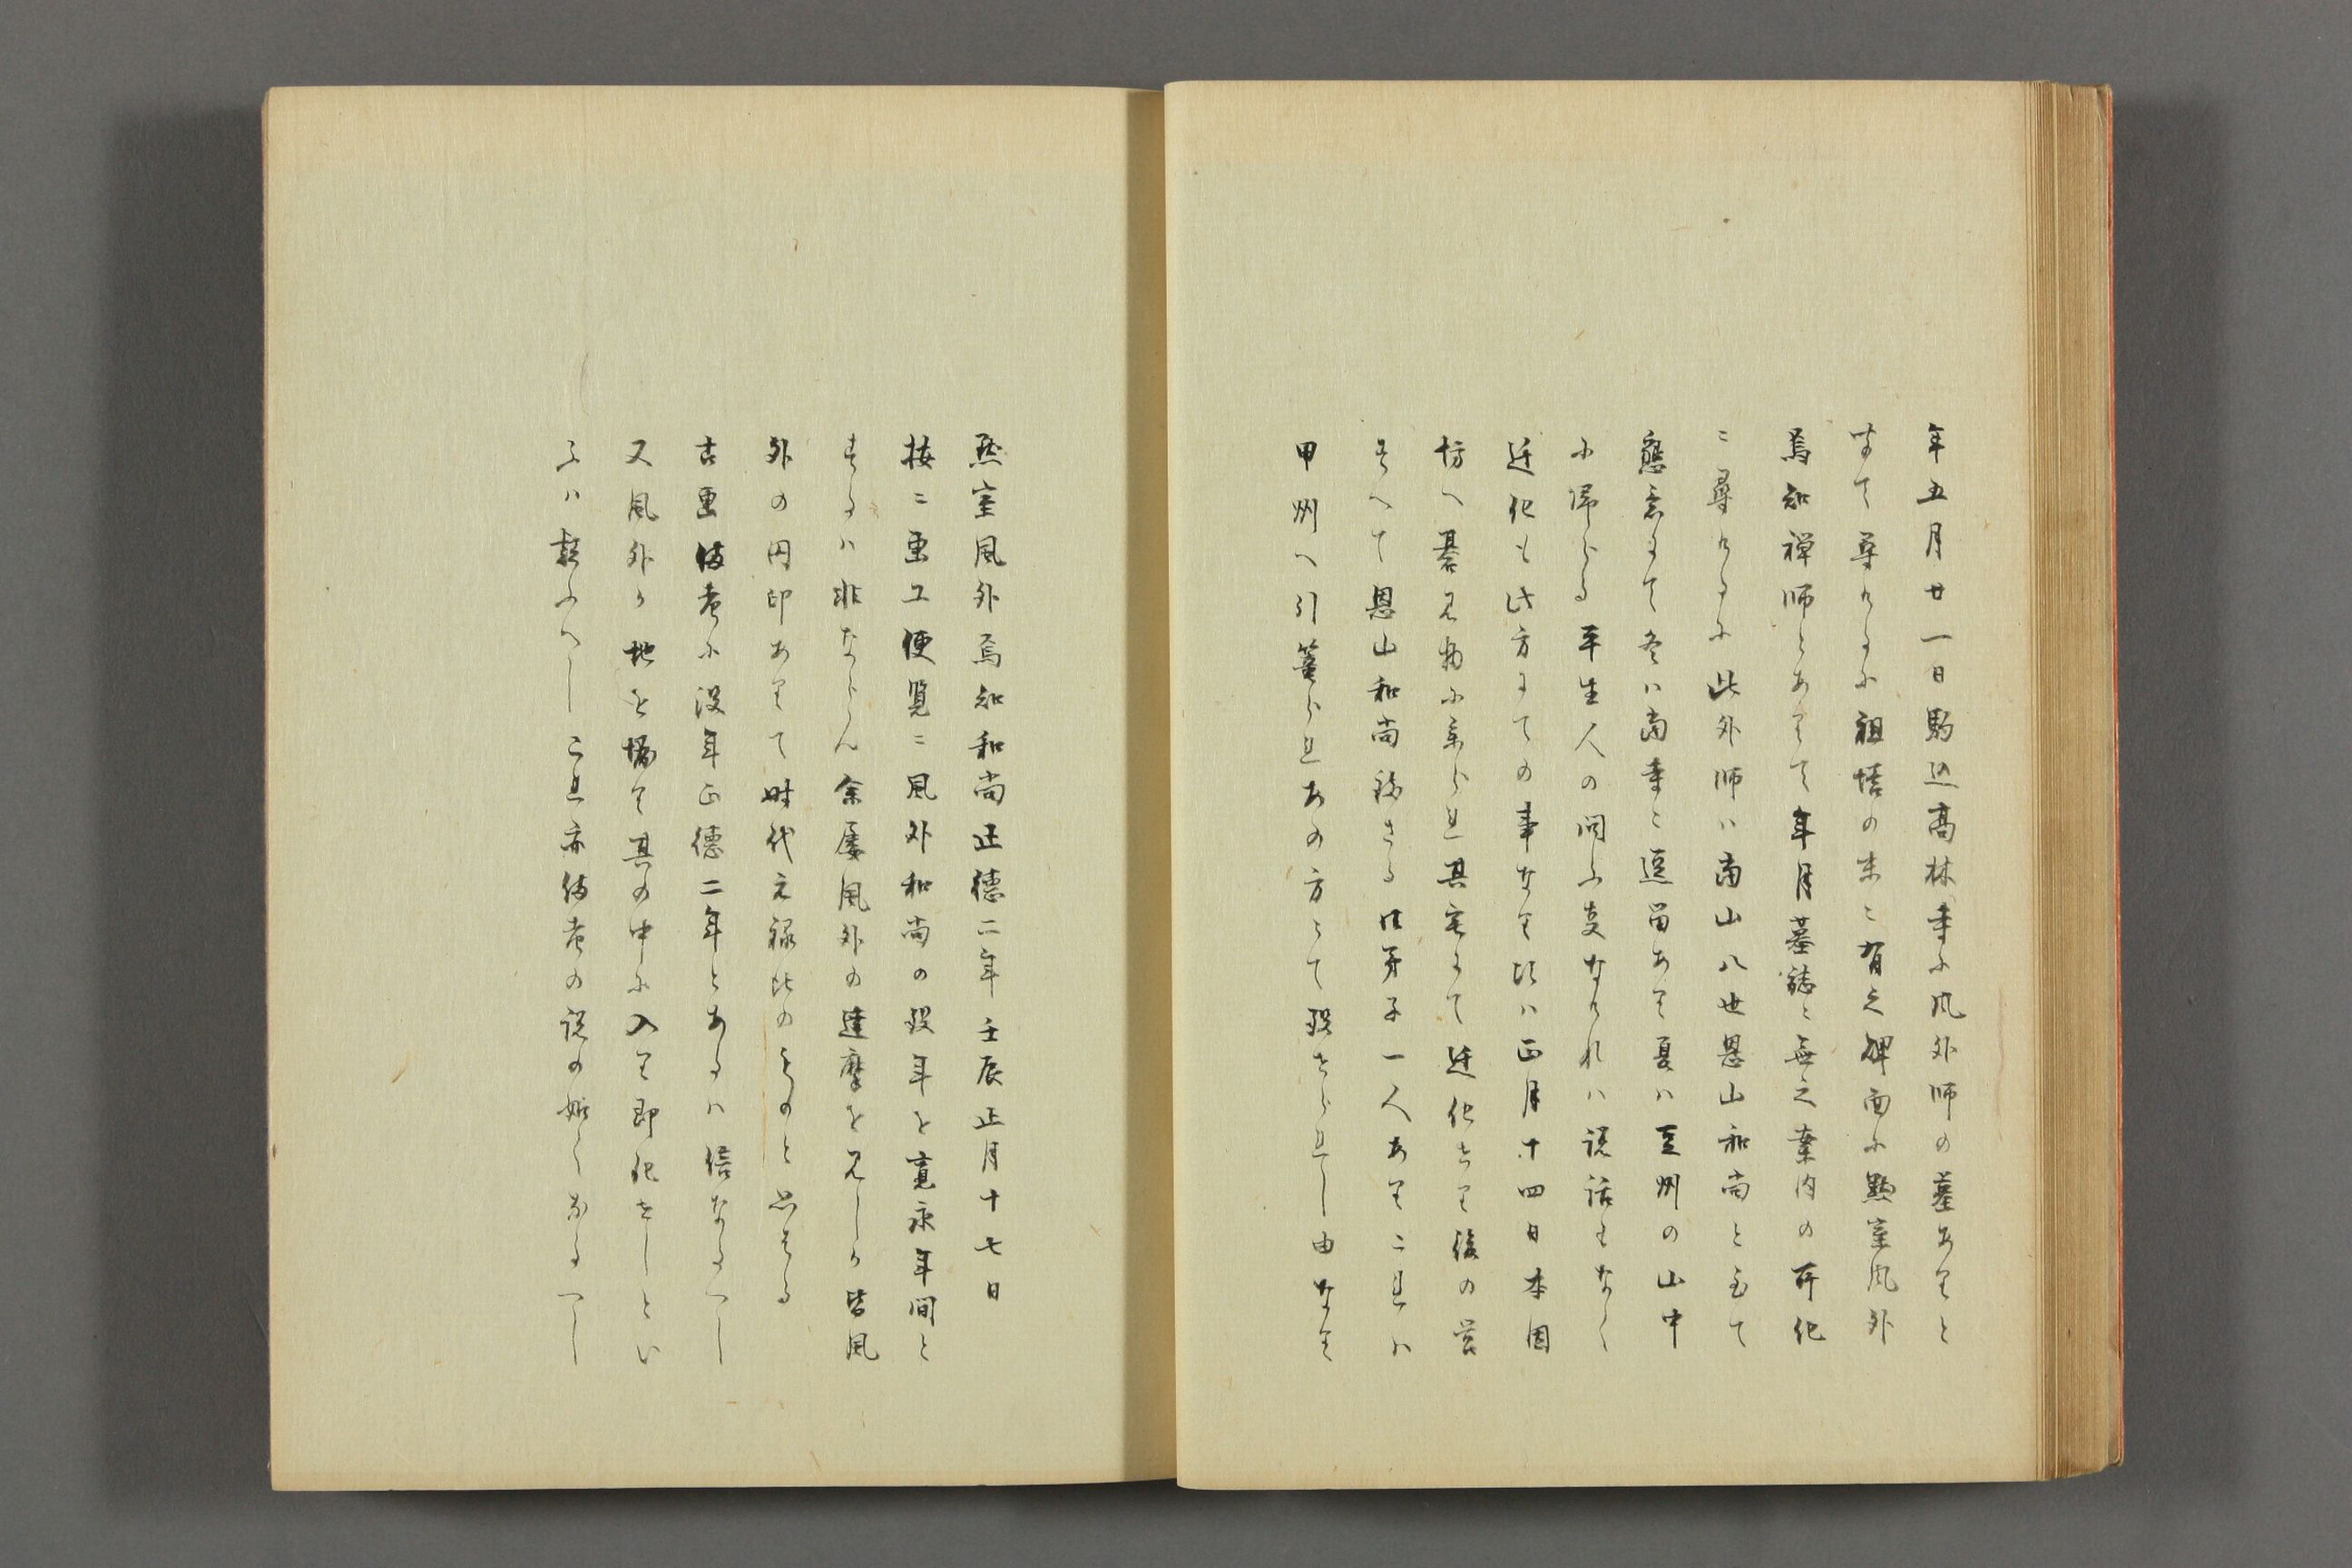 年五月廿一日駒込高林寺に風外師の墓ありと
て尋けるに祖塔の末ニ有之碑面に黙室風外
焉知禅師とありて年月墓誌ハ無之案内の所化
ニ尋けるに此外師ハ當山八世恩山和尚と至て
懇意にて冬ハ當寺ニ逗留あり夏ハ豆州の山中
に帰らる平生人の問ふ事なけれハ談話もなく
迁化も此方にての事なり比ハ正月十四日本国
坊へ碁見物に参られ其宅にて迁化せり後の営
すへて恩山和尚弥さる法弟子一人ありこれハ
甲州へ引籠られあの方にて没せられし由なり
黙室風外焉知和尚正徳二年壬辰正月十七日
按ニ画工便覧ニ風外和尚の没年を寛永年間と
するハ非ならん余屡風外の達摩を見しか皆風
外の円印ありて時代元禄比のものと思はる
古画備考に没年正徳二年とあるハ信なるへし
又風外か地を堀りて其の中に入り即化せしとい
ふハ疑ふへしこれ亦備考の説の如くなるへし